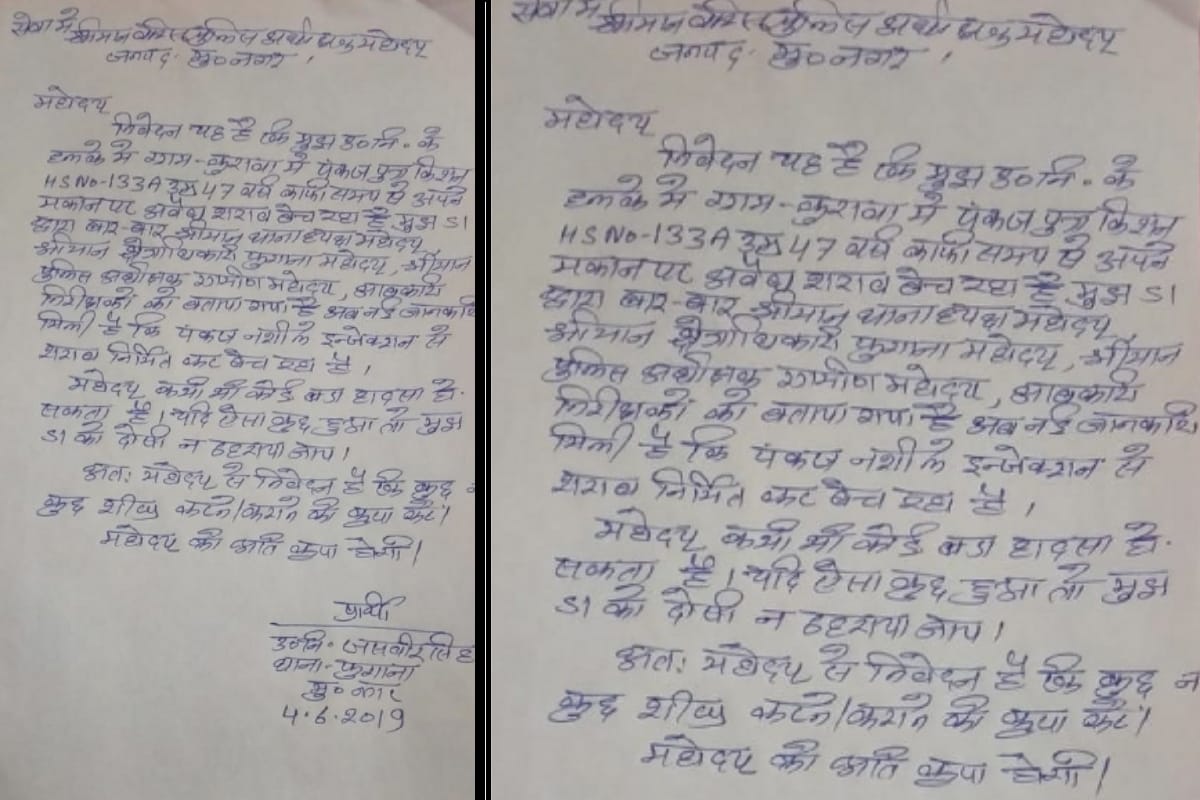 सेवा में
श्रीमान वरिष्ठ पुलिस अधीक्षक महोदय
जनपद- मु०नगर,
महोदय
निवेदन यह है कि मुझ उ०नि०. के
हलके मे ग्राम-कुरावा मे पंकज पुत्र किशन
HS No-133A उम्र 47 वर्ष काफी समय से अपने
मकान पर अवैध शराब बेच रहा है, मुझ SI
द्वारा बार-बार श्रीमान थानाध्यक्ष महोदय,
श्रीमान क्षेत्राधिकारी फुगाना महोदय, श्रीमान
पुलिस अधीक्षक ग्रामीण महोदय, आबकारी
निरीक्षकों को बताया गया है अब नई जानकारी
मिली है कि पंकज नशीले इन्जेक्शन से
शराब निर्मित कर बेच रहा है,
महोदय, कभी भी कोई बडा हादसा हो.
सकता है। यदि ऐसा कुछ हुआ तो मुझ
SI को दोषी न ठहराया जाय।
अतः महोदय से निवेदन है कि कुछ न
कुछ शीघ्र करने/कराने की कृपा करें।
महोदय की अति कृपा होगी।
प्रार्थी
उ०नि०-जसवीर सिंह
थाना-फुगाना
मु०नगर
4.6.2019
सेवा में
श्रीमान वरिष्ठ पुलिस अधीक्षक महोदय
जनपद- मु०नगर,
महोदय
निवेदन यह है कि मुझ उ०नि०. के
हलके मे ग्राम-कुरावा मे पंकज पुत्र किशन
HS No-133A उम्र 47 वर्ष काफी समय से अपने
मकान पर अवैध शराब बेच रहा है, मुझ SI
द्वारा बार-बार श्रीमान थानाध्यक्ष महोदय,
श्रीमान क्षेत्राधिकारी फुगाना महोदय, श्रीमान
पुलिस अधीक्षक ग्रामीण महोदय, आबकारी
निरीक्षकों को बताया गया है अब नई जानकारी
मिली है कि पंकज नशीले इन्जेक्शन से
शराब निर्मित कर बेच रहा है,
महोदय, कभी भी कोई बडा हादसा हो.
सकता है। यदि ऐसा कुछ हुआ तो मुझ
SI को दोषी न ठहराया जाय।
अतः महोदय से निवेदन है कि कुछ न
कुछ शीघ्र करने/कराने की कृपा करें।
महोदय की अति कृपा होगी।